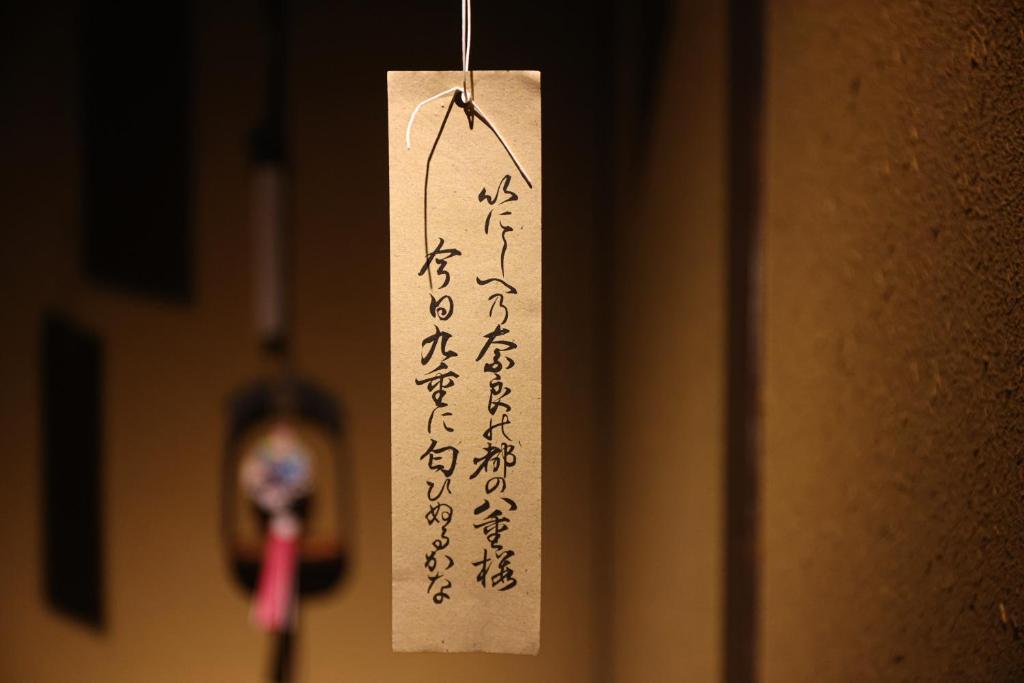 いにしへ乃奈良の都の八重桜
今日九重に匂ひぬるかな